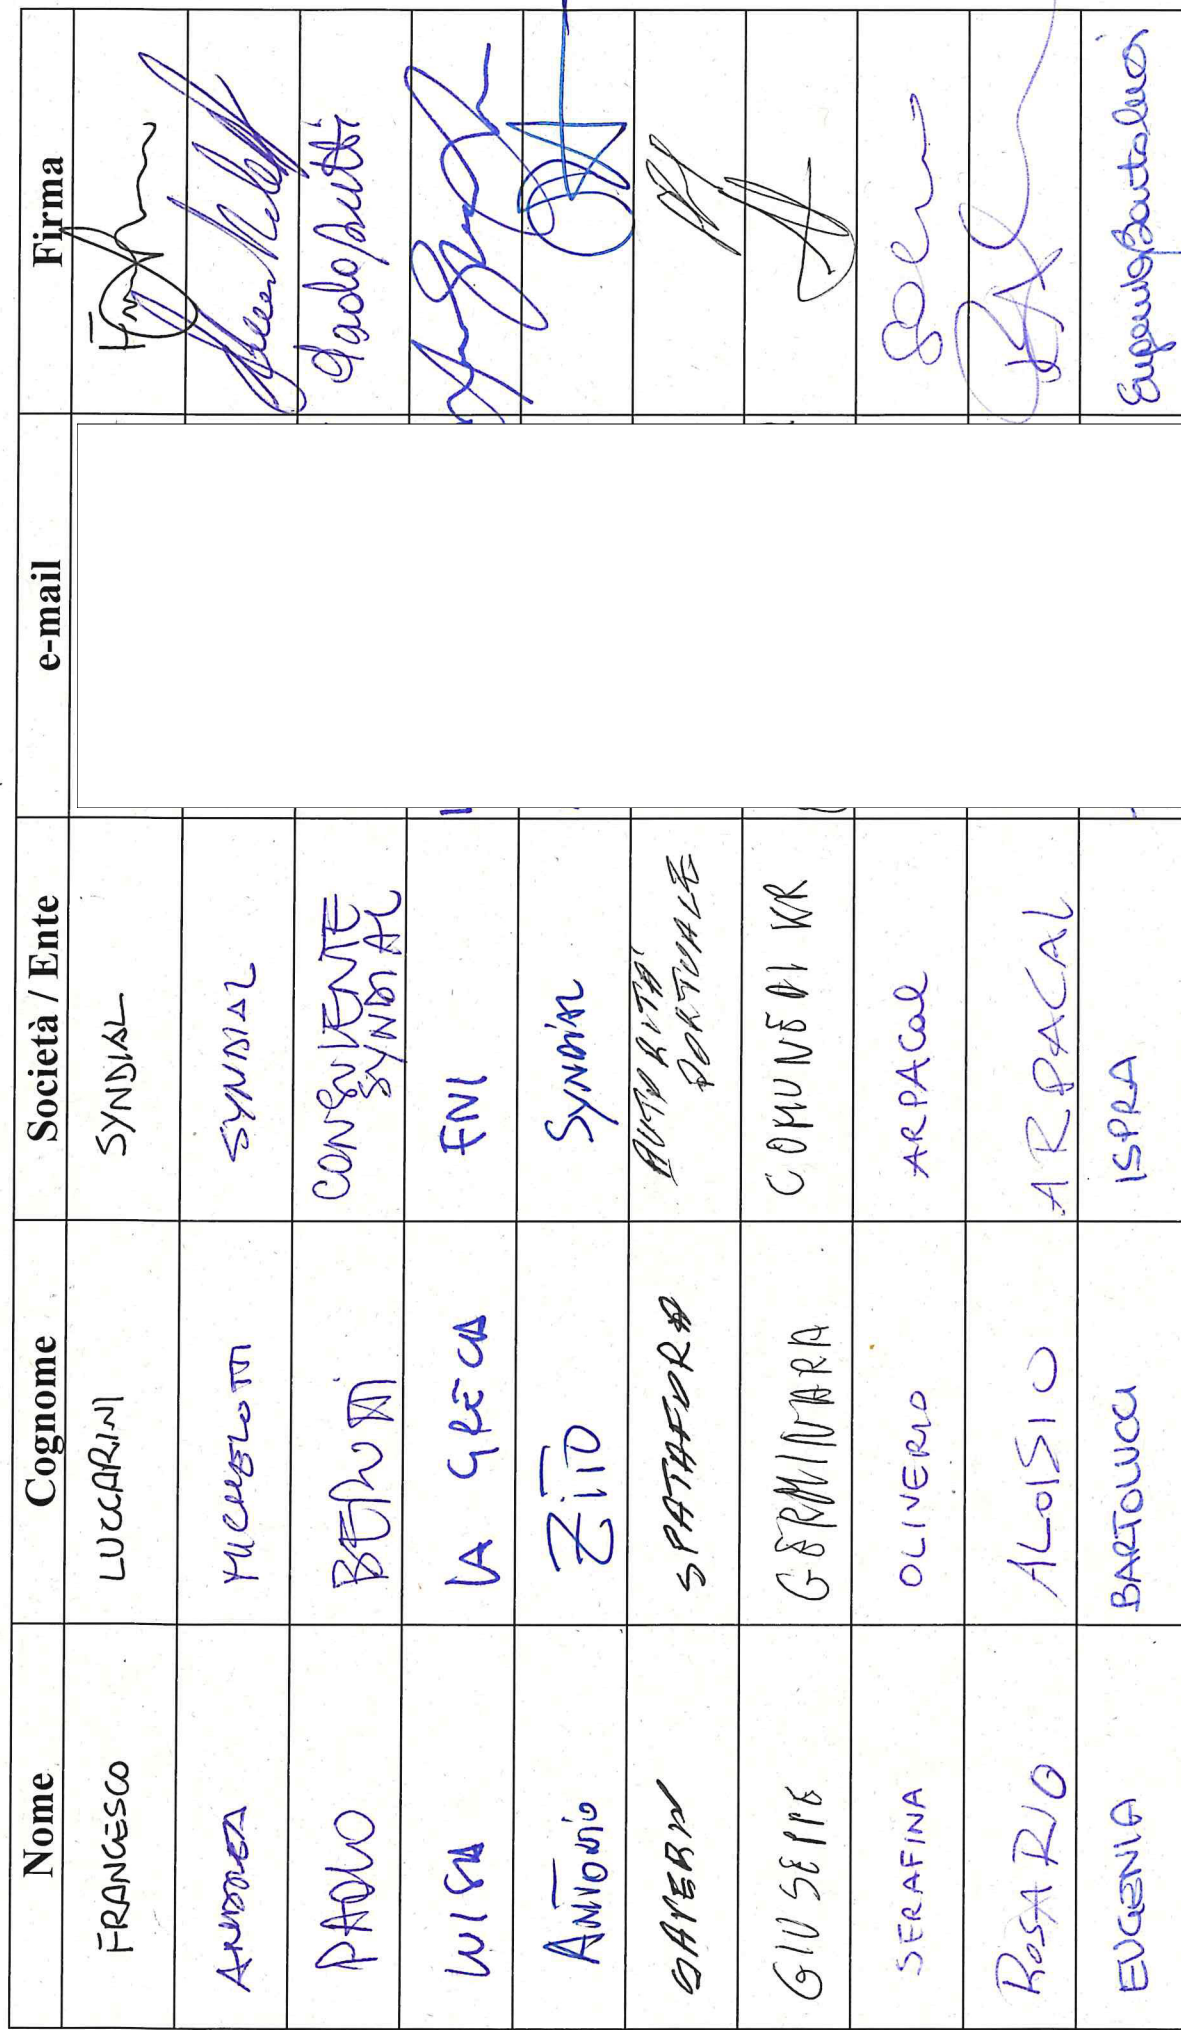 Nome Cognome Società / Ente e-mail Firma
FRANCESCO LUCCARINI SYNDIAL
ANDREA SYNDIAL
PAOLO BERUTTI CONSULENTE
SYNDIAL Paolo Berutti
LUISA LA GRECA ENI
ANTONIO ZITO SYNDIAL
SAVERIO SPATAFORA AUTORITÀ
PORTUALE
GIUSEPPE GERMINARA COMUNE DI KR
SERAFINA OLIVERIO ARPACal
ROSARIO ALOISIO ARPACAL
EUGENIA BARTOLUCCI ISPRA Eugenia Bartolucci